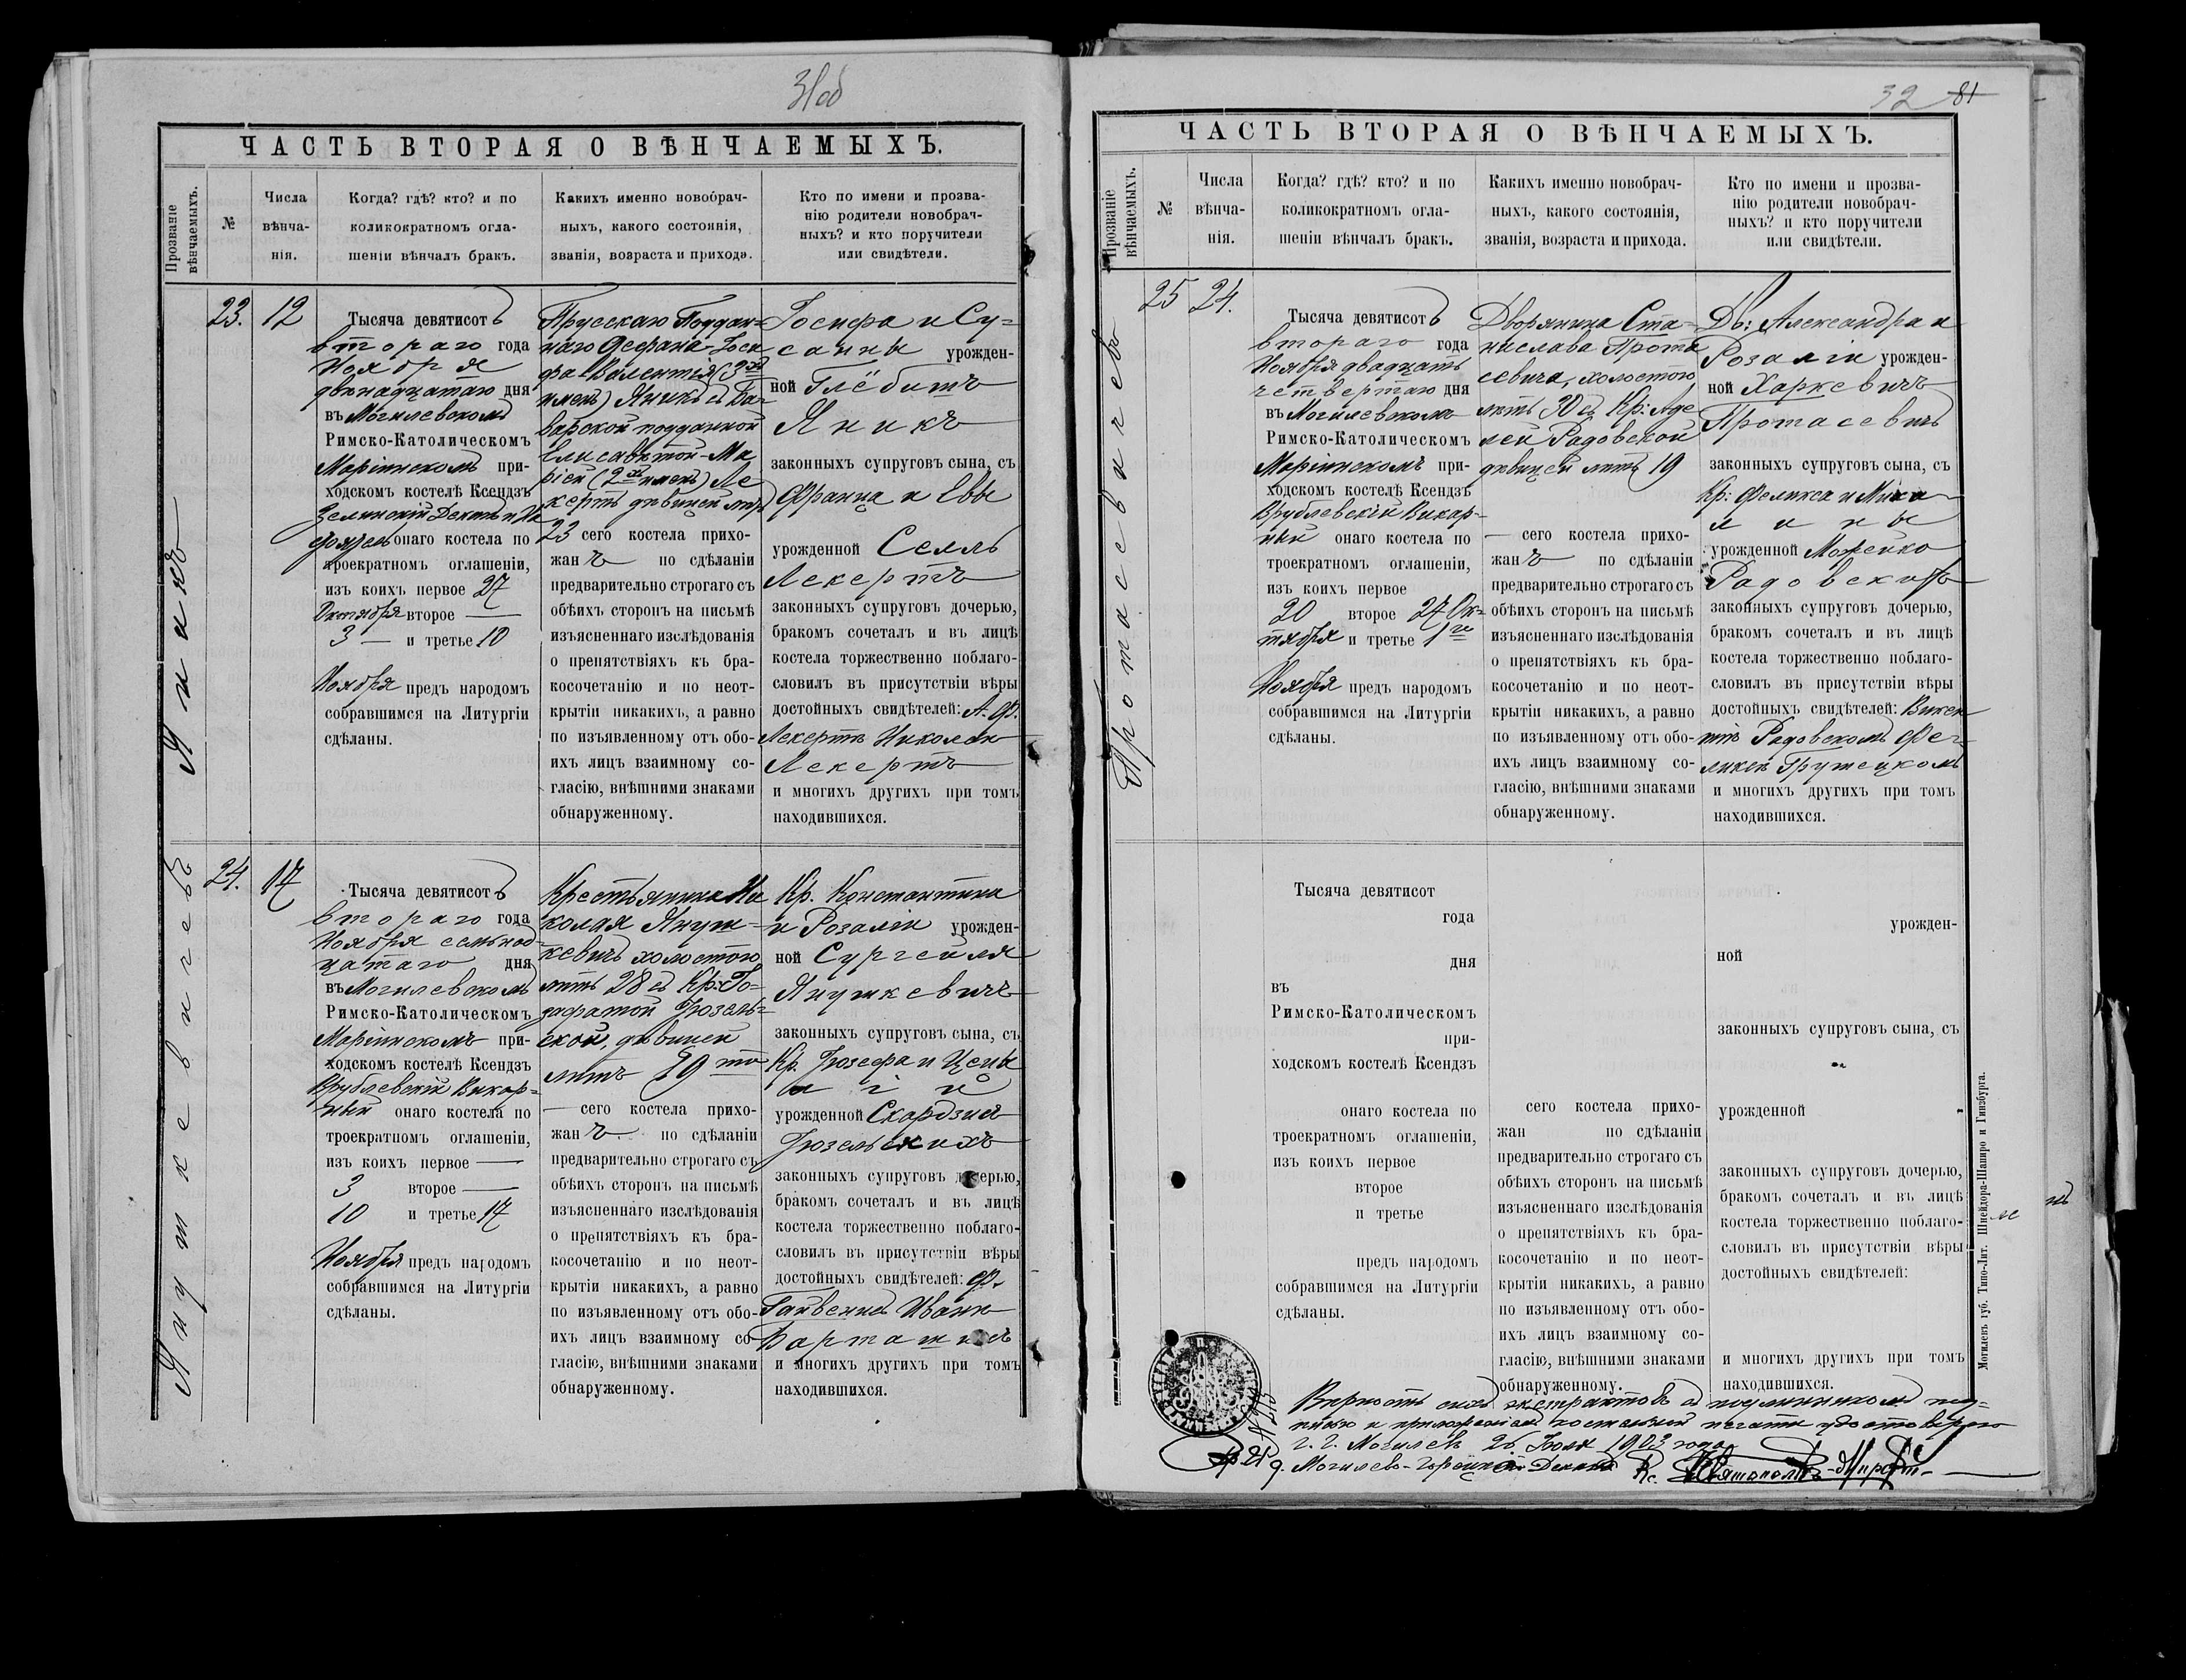 31 об
ЧАСТЬ ВТОРАЯ О ВѢНЧАЕМЫХЪ.
Прозваніе вѣнчаемыхъ.
№
Числа
вѣнча-
нія.
Когда? гдѣ? кто? и по
коликократномъ огла-
шеніи вѣнчалъ бракъ.
Какихъ именно новобрач-
ныхъ, какого состоянія,
званія, возраста и прихода.
Кто по имени и прозва-
нію родители новобрач-
ныхъ? и кто поручители
или свидѣтели.
Яникъ
23.
12
Тысяча девятисотъ
второго года
Ноября
двѣнадцатаго дня
въ Могилевскомъ
Римско-Католическомъ
Маріинскомъ при-
ходскомъ костелѣ Ксендзъ
Зелинскій Деканъ и На
стоятель онаго костела по
троекратномъ оглашеніи,
изъ коихъ первое 27
Октября второе —
3 — и третье 10
Ноября предъ народомъ
собравшимся на Литургіи
сдѣланы.
Прусскаго Поддан-
наго
имен) Яникъ съ Ба-
варской подданной
Елисаветой-Ма
ріей (2хъ имен) Ле
кертъ дѣвицей лѣтъ
23 сего костела прихо-
жанъ по сдѣланіи
предварительно строгаго съ
обѣихъ сторонъ на письмѣ
изъясненнаго изслѣдованія
о препятствіяхъ къ бра-
косочетанію и по неот-
крытіи никакихъ, а равно
по изъявленному отъ обо-
ихъ лицъ взаимному со-
гласію, внѣшними знаками
обнаруженному.
Іосифа и Су-
санны урожден-
ной Глёбитъ
Яникъ
законныхъ супруговъ сына, съ
Франца и Евы
урожденной Селль
Лекертъ
законныхъ супруговъ дочерью,
бракомъ сочеталъ и въ лицѣ
костела торжественно поблаго-
словилъ въ присутствіи вѣры
достойныхъ свидѣтелей: А. Ф.
Лекертъ Николая
Лекертъ
и многихъ другихъ при томъ
находившихся.
Янушкевичъ
24.
17
Тысяча девятисотъ
второго года
Ноября семьнад-
цатаго дня
въ Могилевскомъ
Римско-Католическомъ
Маріинскомъ при-
ходскомъ костелѣ Ксендзъ
Врублевскій Викар-
ный онаго костела по
троекратномъ оглашеніи,
изъ коихъ первое —
3 второе —
10 и третье 17
Ноября предъ народомъ
собравшимся на Литургіи
сдѣланы.
Крестьянина Ни
колая Януш-
кевичъ холостого
лѣтъ 28 съ Кр: Іо-
зафатой Грозель-
ской, дѣвицей
лѣтъ 19 ти
— сего костела прихо-
жанъ по сдѣланіи
предварительно строгаго съ
обѣихъ сторонъ на письмѣ
изъясненнаго изслѣдованія
о препятствіяхъ къ бра-
косочетанію и по неот-
крытіи никакихъ, а равно
по изъявленному отъ обо-
ихъ лицъ взаимному со-
гласію, внѣшними знаками
обнаруженному.
Кр. Константина
и Розаліи урожден-
ной Сургейля
Янушкевичъ
законныхъ супруговъ сына, съ
Кр. Іозефа и
урожденной Скардзи
Грозельскихъ
законныхъ супруговъ дочерью,
бракомъ сочеталъ и въ лицѣ
костела торжественно поблаго-
словилъ въ присутствіи вѣры
достойныхъ свидѣтелей: Ф.
Ивана
и многихъ другихъ при томъ
находившихся.
32 81
ЧАСТЬ ВТОРАЯ О ВѢНЧАЕМЫХЪ.
Прозваніе вѣнчаемыхъ.
№
Числа
вѣнча-
нія.
Когда? гдѣ? кто? и по
коликократномъ огла-
шеніи вѣнчалъ бракъ.
Какихъ именно новобрач-
ныхъ, какого состоянія,
званія, возраста и прихода.
Кто по имени и прозва-
нію родители новобрач-
ныхъ? и кто поручители
или свидѣтели.
Протасевичъ
25
24.
Тысяча девятисотъ
второго года
Ноября двадцать
четвертаго дня
въ Могилевскомъ
Римско-Католическомъ
Маріинскомъ при-
ходскомъ костелѣ Ксендзъ
Врублевскій Викар-
ный онаго костела по
троекратномъ оглашеніи,
изъ коихъ первое
20 второе 27 Ок-
тября и третье 1го
Ноября предъ народомъ
собравшимся на Литургіи
сдѣланы.
Дворянина Ста-
нислава Прота
севича, холостого
лѣтъ 30 съ Кр: Аде
лей Радовской
дѣвицей лѣтъ 19
— сего костела прихо-
жанъ по сдѣланіи
предварительно строгаго съ
обѣихъ сторонъ на письмѣ
изъясненнаго изслѣдованія
о препятствіяхъ къ бра-
косочетанію и по неот-
крытіи никакихъ, а равно
по изъявленному отъ обо-
ихъ лицъ взаимному со-
гласію, внѣшними знаками
обнаруженному.
Дв: Александра и
Розаліи урожден-
ной Харкевичъ
Протасевичъ
законныхъ супруговъ сына, съ
Кр: Феликса и Миха
лины
урожденной Можейко
Радовскихъ
законныхъ супруговъ дочерью,
бракомъ сочеталъ и въ лицѣ
костела торжественно поблаго-
словилъ въ присутствіи вѣры
достойныхъ свидѣтелей: Викен
тіѣ Радовскомъ Фе-
ликсѣ Грушецкомъ
и многихъ другихъ при томъ
находившихся.
Тысяча девятисот
года
дня
въ
Римско-Католическомъ
при-
ходскомъ костелѣ Ксендзъ
онаго костела по
троекратномъ оглашеніи,
изъ коихъ первое
второе
и третье
предъ народомъ
собравшимся на Литургіи
сдѣланы.
сего костела прихо-
жан по сдѣланіи
предварительно строгаго съ
обѣихъ сторонъ на письмѣ
изъясненнаго изслѣдованія
о препятствіяхъ къ бра-
косочетанію и по неот-
крытіи никакихъ, а равно
по изъявленному отъ обо-
ихъ лицъ взаимному со-
гласію, внѣшними знаками
обнаруженному.
урожден-
ной
законныхъ супруговъ сына, съ
урожденной
законныхъ супруговъ дочерью,
бракомъ сочеталъ и въ лицѣ
костела торжественно поблаго-
словилъ въ присутствіи вѣры
достойныхъ свидѣтелей:
и многихъ другихъ при томъ
находившихся.
Могилевъ губ. Типо-Лит. Шнейдора-Шапиро и Гинзбурга.
Вѣрность сихъ экстрактовъ съ подлинникомъ под-
писью и приложеніемъ костельной печати удостовѣряю
г. Могилевъ 26 Іюля 1903 года
Могилево- Деканъ Кс. Святополкъ-Мирскій